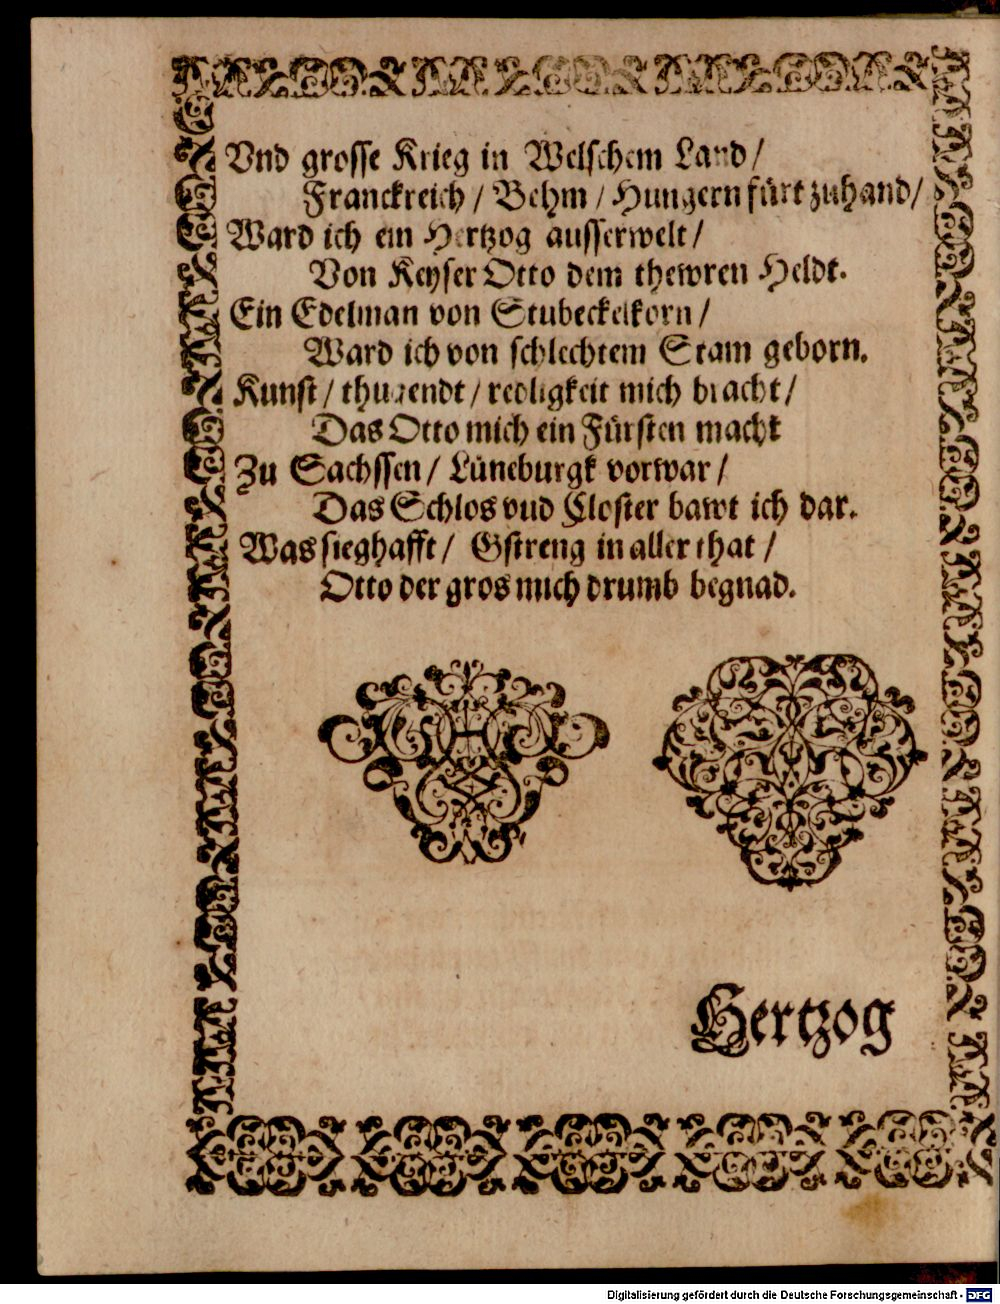 Vnd grosse Krieg in Welschem Land /
Franckreich / Behm / Hungern fürt zuhand /
Ward ich ein Hertzog ausserwelt /
Von Keyser Otto dem thewren Heldt.
Ein Edelman von Stubeckelkorn /
Ward ich von schlechtem Stam geborn.
Kunst / thugendt / redligkeit mich bracht /
Das Otto mich ein Fürsten macht
Zu Sachssen / Lüneburgk vorwar /
Das Schlos vnd Closter bawt ich dar.
Was sieghafft / Gstreng in aller that /
Otto der gros mich drumb begnad.
Hertzog
Digitalisierung gefördert durch die Deutsche Forschungsgemeinschaft - DFG